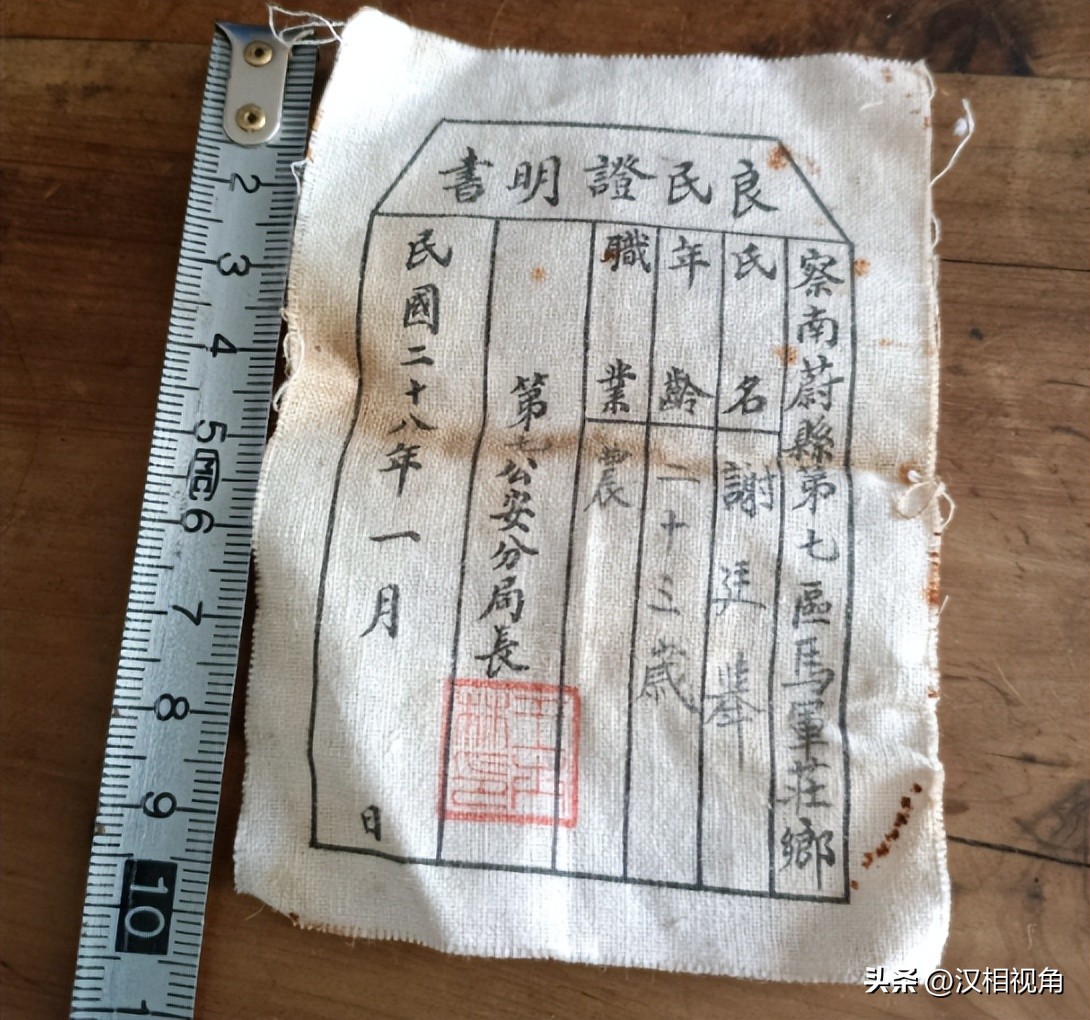 良民證明書
察南蔚縣第七區馬軍莊鄉
氏名 謝廷舉
年齡 二十三歲
職業 農
第七公安分局長
民國二十八年一月 日
2
3
4
5
MC
6
7
8
9
10
头条 @汉相视角